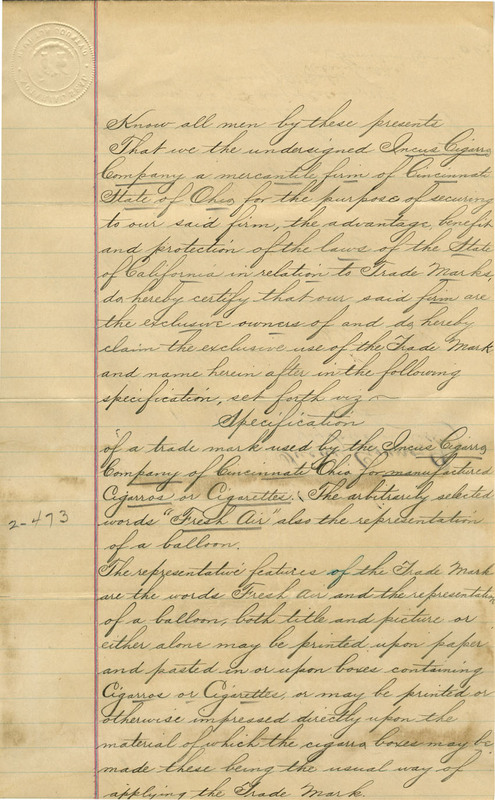 Know all men by these presents
That we the undersigned Incus Cigarro
Company a mercantile firm of Cincinnati
State of Ohio, for the purpose of securing
to our said firm, the advantage, benefit
and protection of the laws of the State
of California in relation to Trade Marks,
do, hereby certify that our said firm are
the exclusive owners of and do, hereby
claim the exclusive use of the Trade Mark
and name herein after in the following
specification, set forth viz ~
Specification
"of a trade mark used by the Incus Cigarro
Company of Cincinnati Ohio, for manufactured
Cigarros or Cigarettes. The arbitrarily selected
words "Fresh Air" also the representation
2-473
of a balloon.
The representative features of the Trade Mark
are the words Fresh Air and the representation
of a balloon, both title and picture or
either alone may be printed upon paper
and pasted in or upon boxes containing
Cigarros or Cigarettes, or may be printed or
otherwise impressed directly upon the
material of which the cigarro boxes may be
made these being the usual way of
applying the Trade Mark.